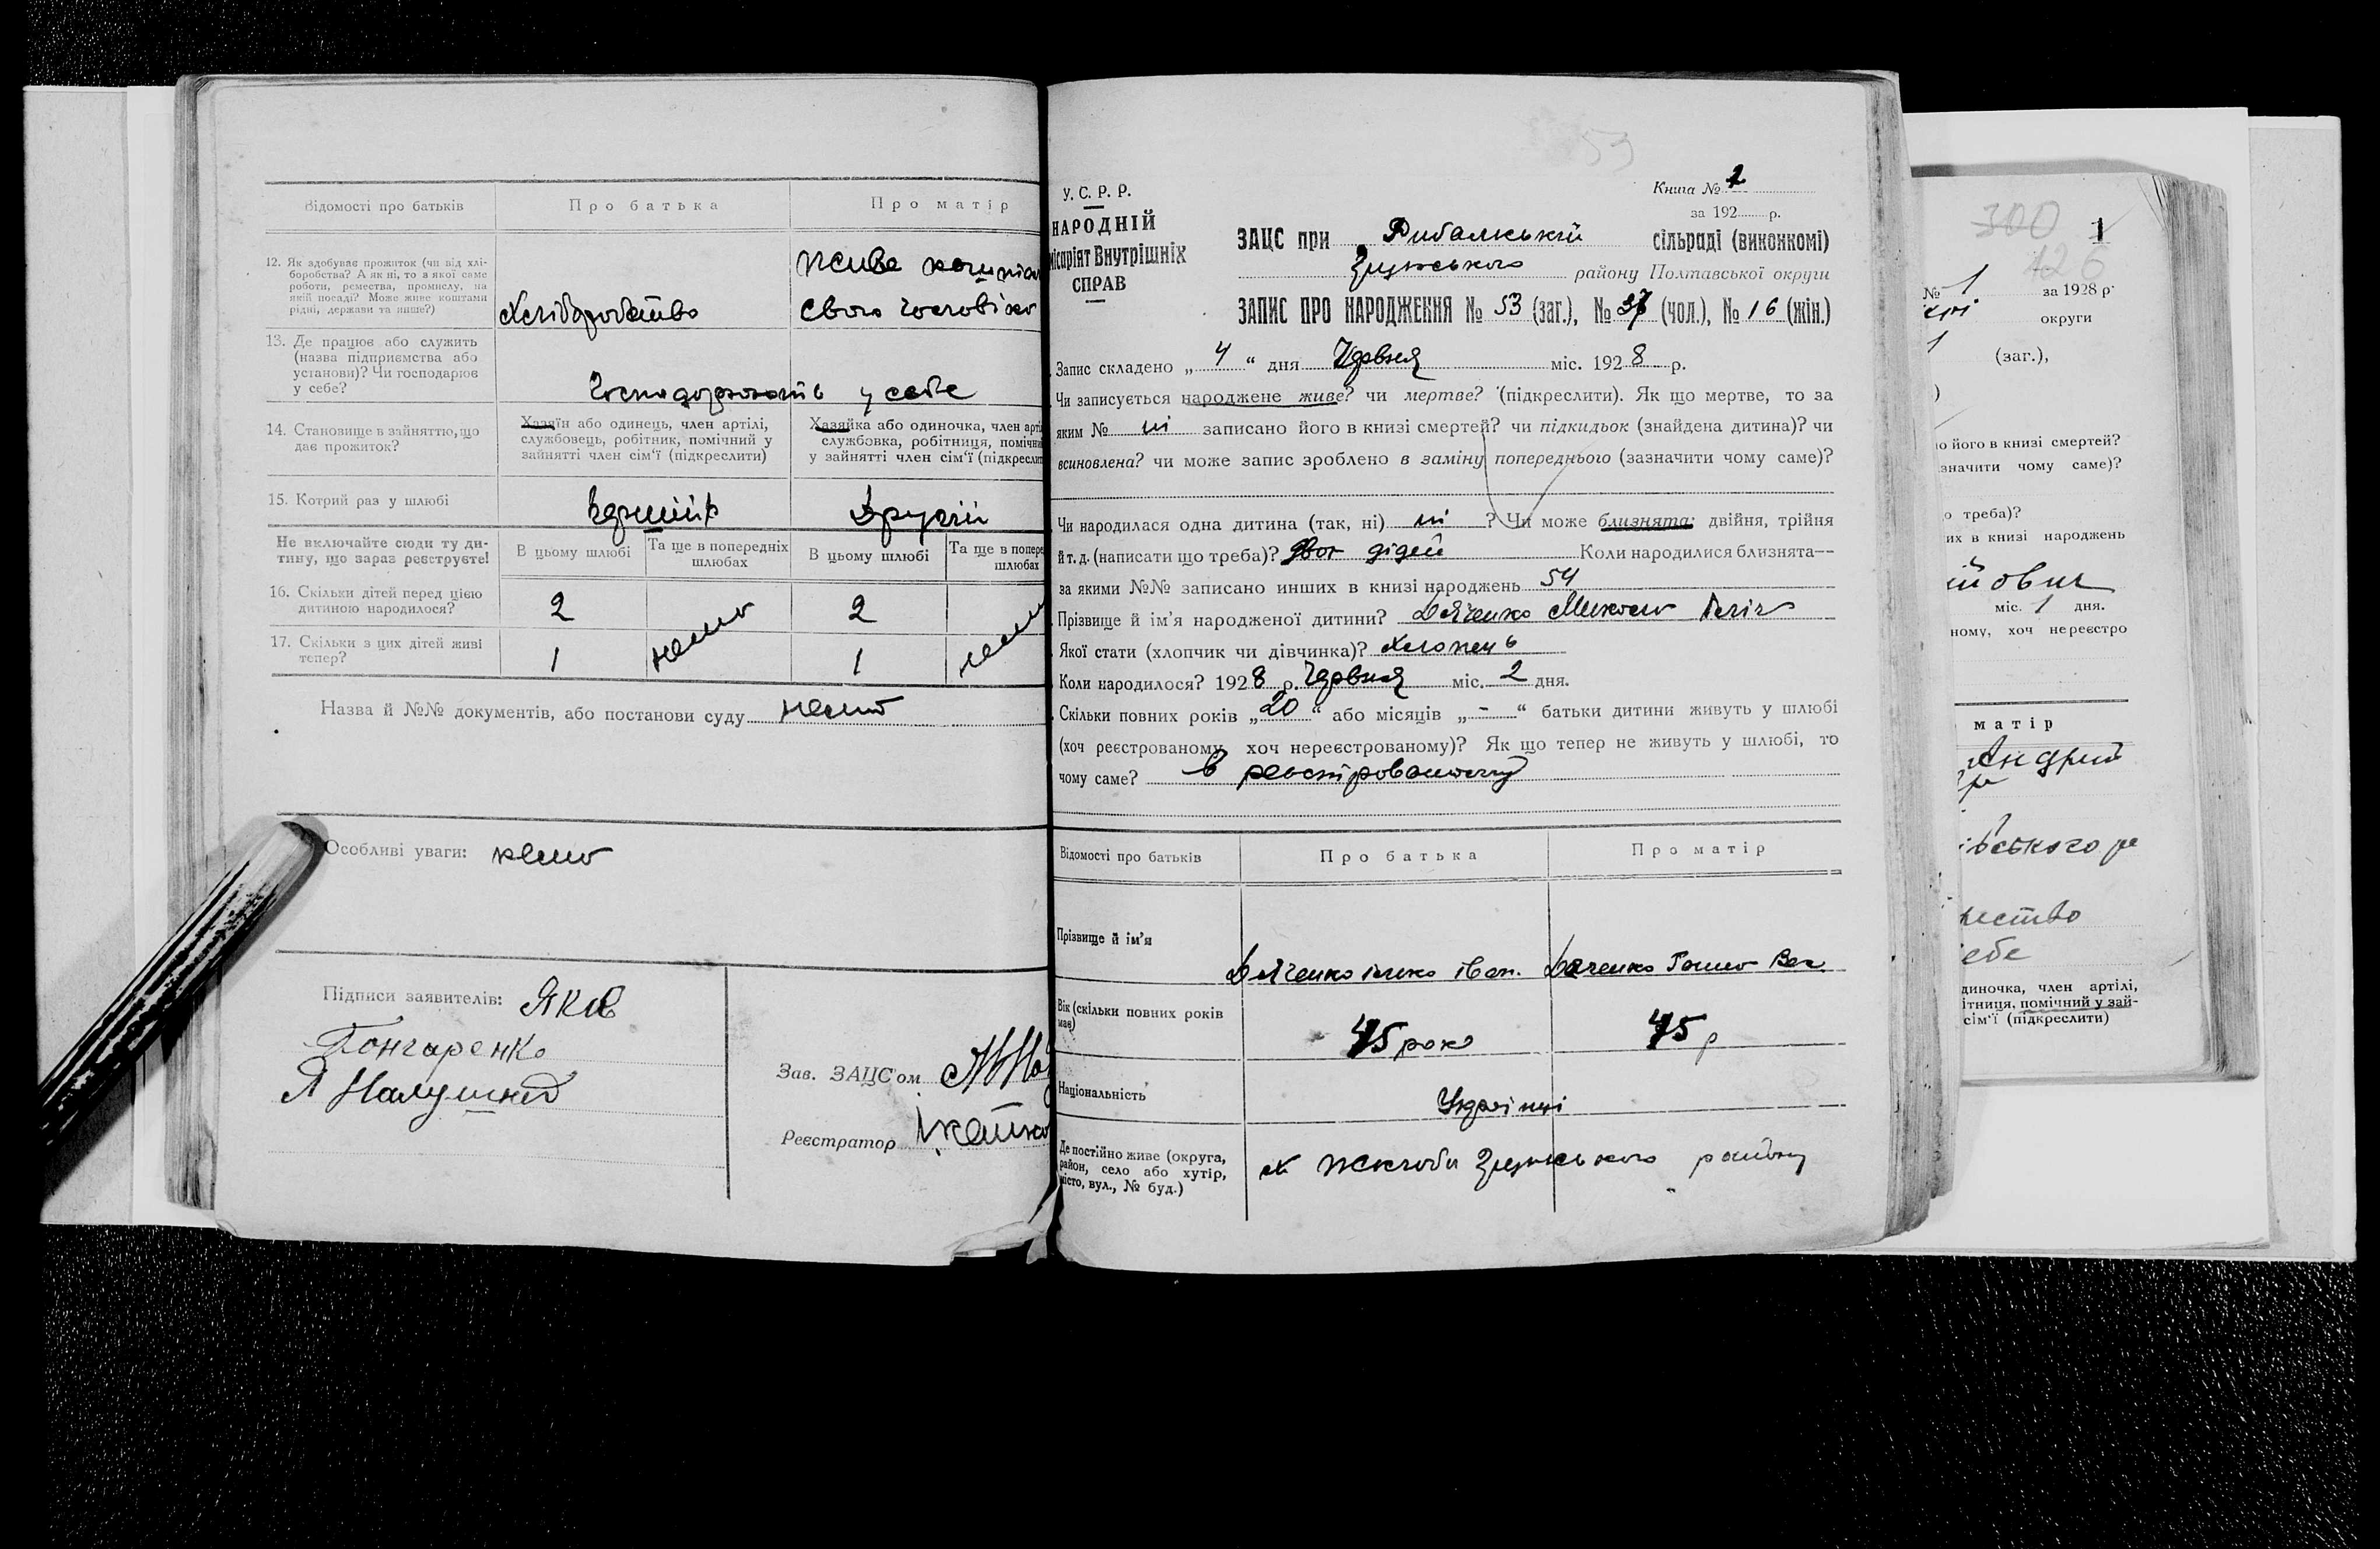 Відомості про батьків
Про батька
Про матір
12. Як здобуває прожиток (чи від хлі-
боробства? А як ні, то з якої саме
роботи, ремества, промислу, на
якій посаді? Може живе коштами
рідні, держави та инше?)
Хліборобство
живе коштом
свого чоловіка
13. Де працює або служить
(назва підприємства або
установи)? Чи господарює
у себе?
Господорюють у себе
14. Становище в зайняттю, що
дає прожиток?
Хазяїн або одинець, член артілі,
службовець, робітник, помічний у
зайнятті член сім'ї (підкреслити)
Хазяйка або одиночка, член арті
службовка, робітниця, помічн
у зайнятті член сім'ї (підкресли
15. Котрий раз у шлюбі
Другий
Не включайте сюди ту ди-
тину, що зараз реєструєте!
В цьому шлюбі
Та ще в попередніх
шлюбах
В цьому шлюбі
Та ще в попере
шлюбах
16. Скільки дітей перед цією
дитиною народилося?
2
нема
2
нема
17. Скільки з цих дітей живі
тепер?
1
1
Назва й №№ документів, або постанови суду нема
Особливі уваги: нема
Підписи заявителів: Яків
Гончаренко
Зав. ЗАЦС'ом
Реєстратор
53
У. С. Р. Р.
НАРОДНІЙ
місаріят Внутрішніх
СПРАВ
Книга № 1
за 192 р.
ЗАЦС при Рибальській сільраді (виконкомі)
Зіньського району Полтавської округи
ЗАПИС ПРО НАРОДЖЕННЯ № 53 (заг.), № 37 (чол.), № 16 (жін.)
Запис складено „ 4 “ дня Червня міс. 1928 р.
Чи записується народжене живе? чи мертве? (підкреслити). Як що мертве, то за
яким № ні записано його в книзі смертей? чи підкидьок (знайдена дитина)? чи
всиновлена? чи може запис зроблено в заміну попереднього (зазначити чому саме)?
Чи народилася одна дитина (так, ні) ні ? Чи може близнята: двійня, трійня
й т. д. (написати що треба)? двох дідей Коли народилися близнята—
за якими №№ записано инших в книзі народжень 54
Прізвище й ім'я народженої дитини? Дяченко Микола Ілліч
Якої стати (хлопчик чи дівчинка)? Хлопець
Коли народилося? 1928 р. Червня міс. 2 дня.
Скільки повних років „ 20 “ або місяців „ - “ батьки дитини живуть у шлюбі
(хоч реєстрованому, хоч нереєстрованому)? Як що тепер не живуть у шлюбі, то
чому саме? В реєстрованому
Відомості про батьків
Про батька
Про матір
Прізвище й ім'я
Дяченко Ілько Іван.
Дяченко Ганна Вас
Вік (скільки повних років
має)
45 рокв
45 р
Національність
Українці
Де постійно живе (округа,
район, село або хутір,
місто, вул., № буд.)
району
300
1
126
№ 1 за 1928 р.
округи
1 (заг.),
)
о його в книзі смертей?
значити чому саме)?
о треба)?
их в книзі народжень
йович
міс. 1 дня.
ному, хоч нереєстро
матір
Андрій
івського ра
ество
себе
диночка, член артілі,
ітниця, помічний у зай-
сім'ї (підкреслити)